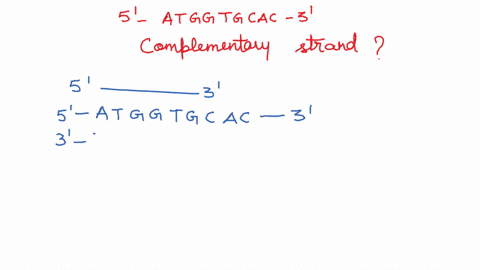 5'- ATGGTGCAC -3'
Complementary strand ?
5' ——— 3'
5'- ATGGTGCAC — 3'
3'-